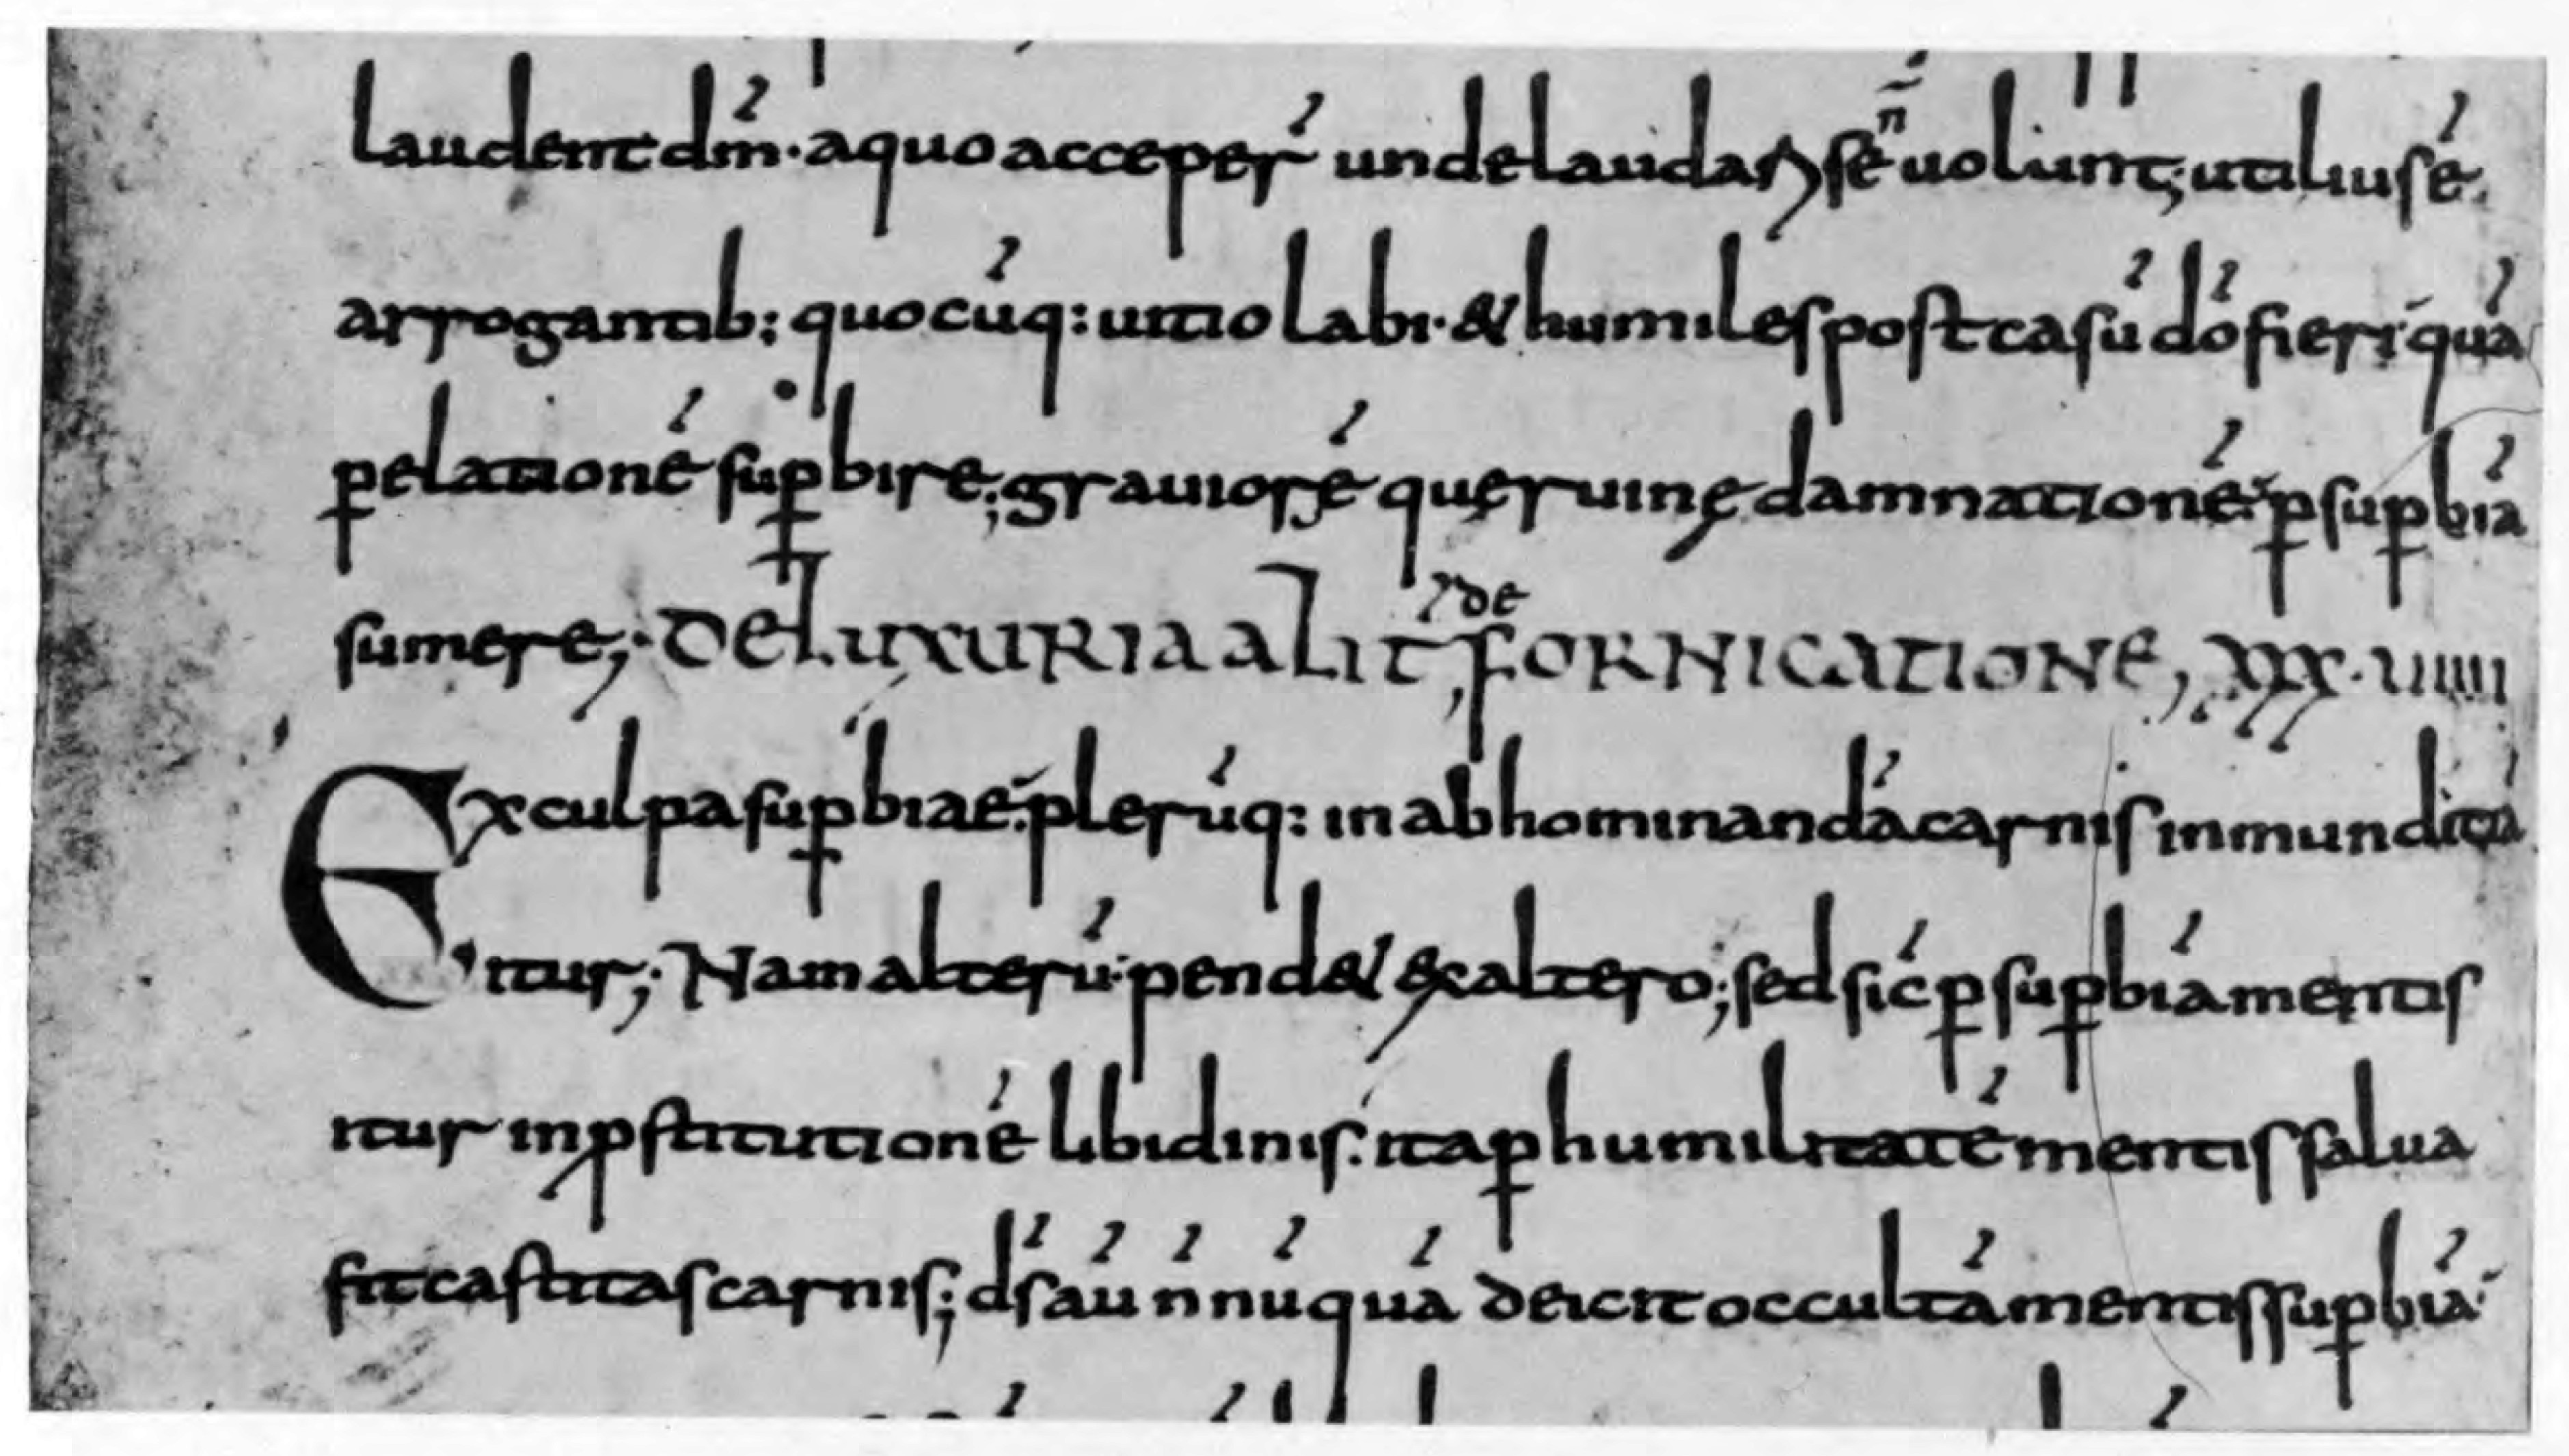 laudent dm̄. a quo acceper̄ unde laudari se n̄ uolunt; utilius ē
arrogantib; quocūq: uitio labi. & humiles post casū dō fieri quā
ꝑ elationē suꝑbire; grauiorē que ruinę damnationē ꝑ suꝑbiā
sumere; DE LUXURIA A LIT, de FORNICATIONE, XXX.UIIII
Ex culpa suꝑbiae plerūq: in abhominandā carnis inmunditiā
itur; Nam alterū pend& ex altero; sed sić ꝑ suꝑbiā mentis
itur in ꝓstitutionē libidinis. ita ꝑ humilitatē mentis salua
fit castitas carnis; ds̄ aū n̄nūquā deicit occultā mentis suꝑbiā